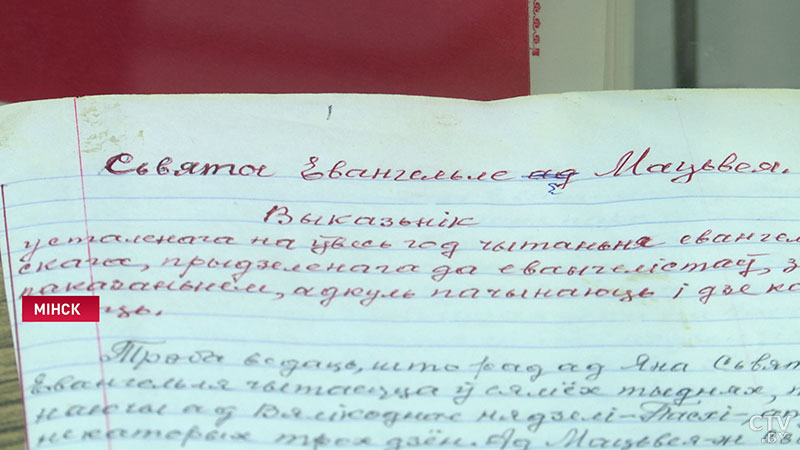 1
Сьвятое Евангельле ад Мацьвея.
Выказьнік
усталенага на ўвесь год чытаньня евангель
скага, прыдзеленага да евангелістаў, з
паказаньнем, адкуль пачынаюць і дзе ка
МІНСК
ць.
Трэба ведаць, што рад ад Яна Сьвят
Евангельля чытаецца ў сямёх тыднях, п
наючы ад Вялікоднае нядзелі-Пасхі-ар
некаторых трох дзён. Ад Мацьвея-ж
CTV
.BY